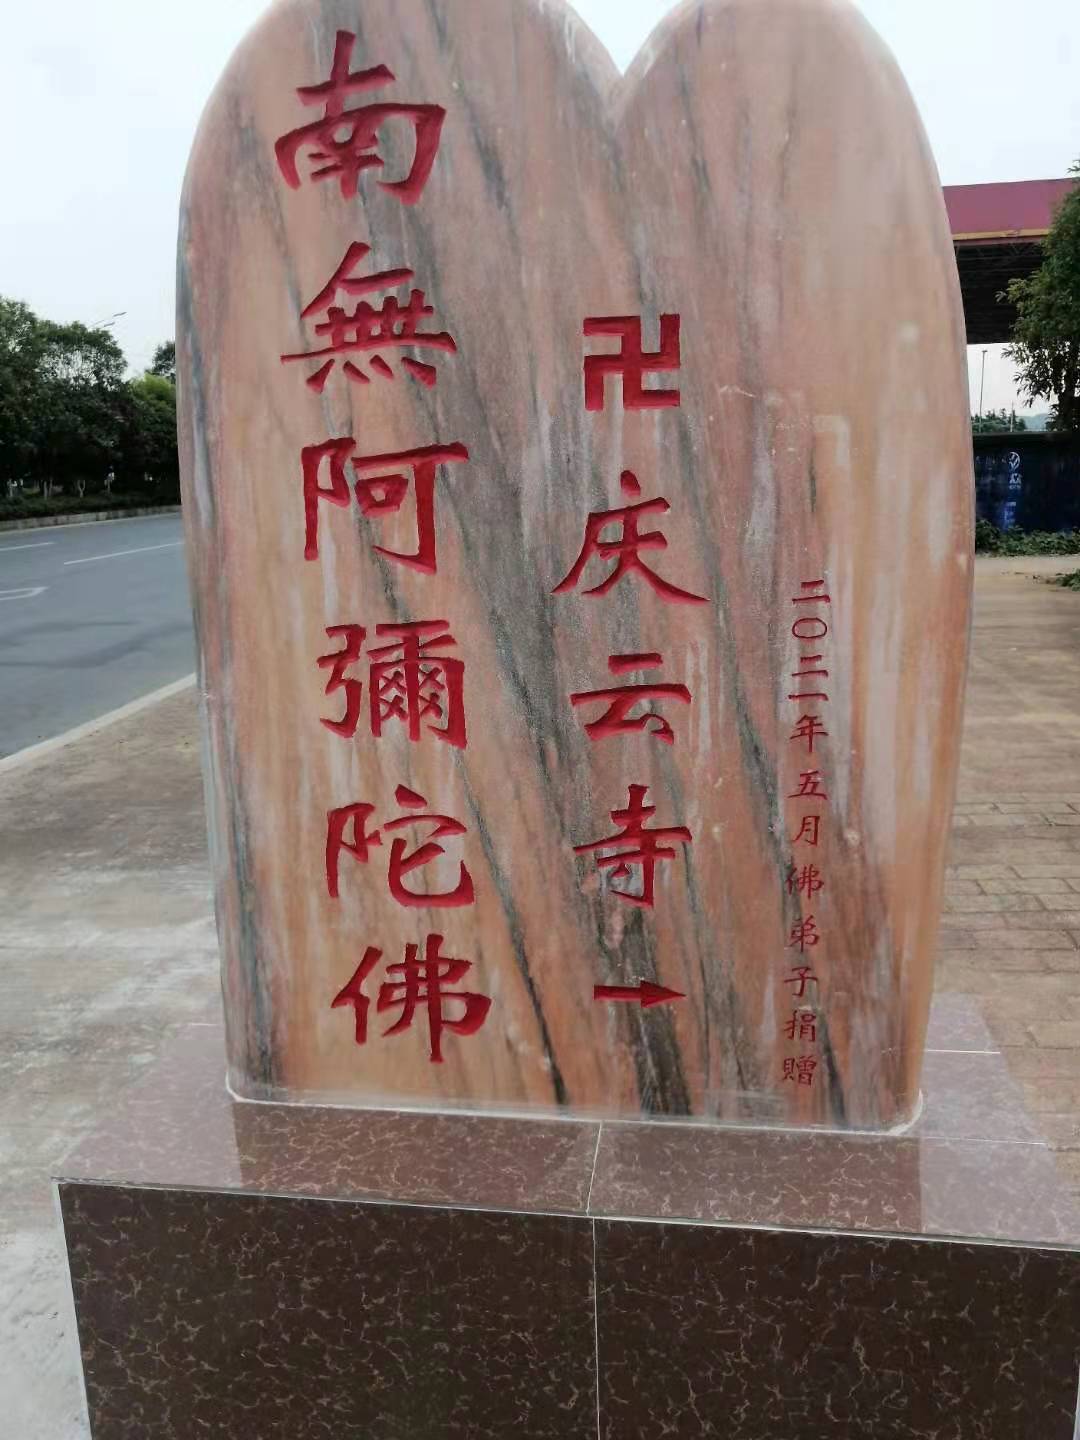 南無阿彌陀佛
卍庆云寺→
二〇二一年五月佛弟子捐赠